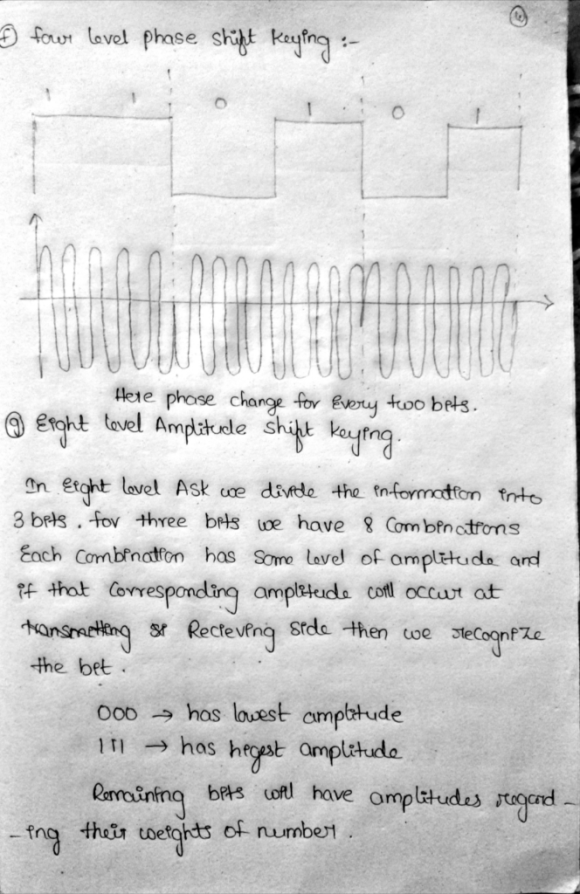 f) four level phase shift keying :-
1 1 0 1 0 1
Here phase change for Every two bets.
g) Eight level Amplitude shift keying.
In Eight level ASK we divide the information into
3 bits. for three bits we have 8 Combinations
Each Combination has Some level of amplitude and
if that Corresponding amplitude will occur at
transmetting or Recieving side then we recognize
the bet.
000 → has lowest amplitude
111 → has hegest amplitude
Remaining bits will have amplitudes regard-
-ing their weights of number.